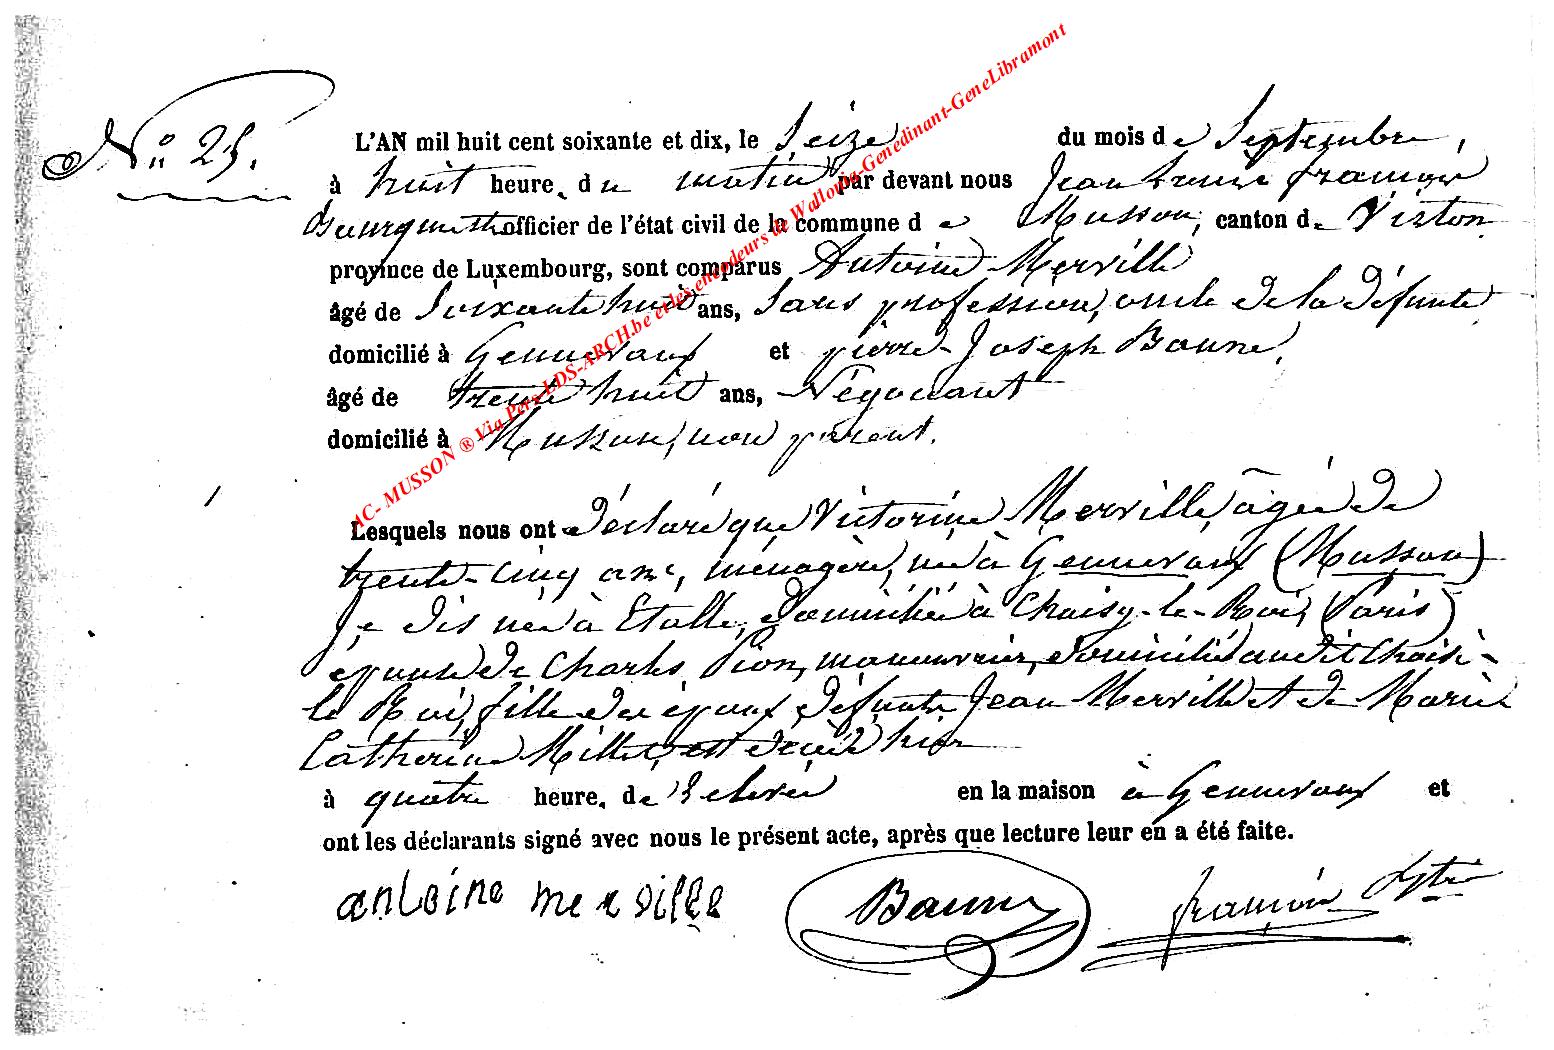 AC- MUSSON ® Via Pers-LDS-ARCH.be et les encodeurs de Wallonia-Genedinant-GeneLibramont
N.º 25.
L'AN mil huit cent soixante et dix, le Seize du mois de Septembre,
à huit heure, du matin par devant nous Jean
officier de l'état civil de la commune de Musson, canton de Virton
province de Luxembourg, sont comparus Antoine Merville
âgé de Soixante huit ans, Sans profession, oncle de la défunte
domicilié à Gennevaux et pierre-Joseph Baune,
âgé de trente huit ans, Négociant
domicilié à Musson, non parent.
Lesquels nous ont déclaré que Victorine Merville, âgée de
trente-cinq ans, ménagère, née à Gennevaux (Musson)
je dis née à Etalle, domiciliée à Choisy-le-Roi, (Paris)
épouse de Charles Pion, manouvrier, domicilié audit Choisi-
le Roi, fille des époux défunts Jean Merville et de Marie
Catherine Millet, est décédée hier
à quatre heure, de relevée en la maison à Gennevaux et
ont les déclarants signé avec nous le présent acte, après que lecture leur en a été faite.
antoine merville Baune